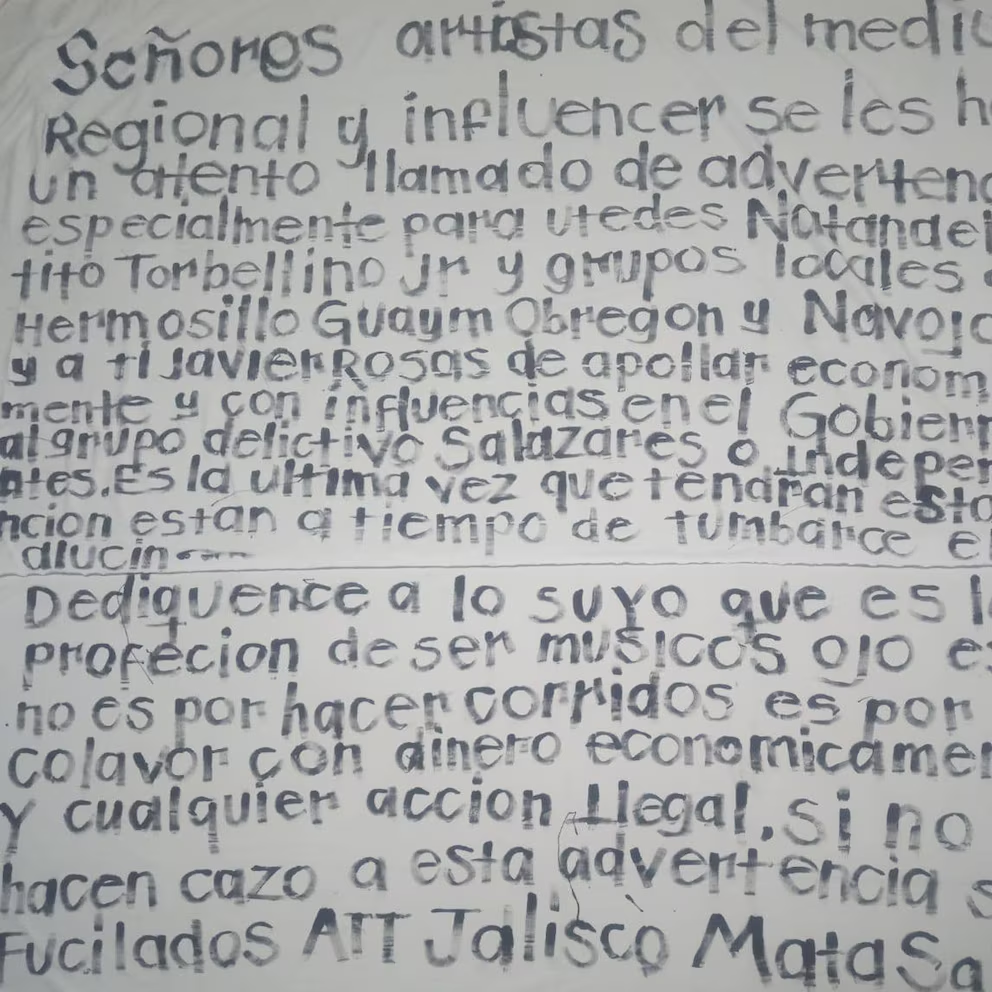 Señores artistas del medio
Regional y influencer se les h
un atento llamado de advertenc
especialmente para utedes Natanael
tito Torbellino Jr y grupos locales
Hermosillo Guaym Obregon y Navojo
y a ti Javier Rosas de apollar econom
mente y con influencias en el Gobiern
al grupo delictivo Salazares o indepen
ntes. Es la ultima vez que tendran esta
ncion estan a tiempo de tumbarce el
alucin
Dediquence a lo suyo que es l
profecion de ser musicos ojo es
no es por hacer corridos es por
colavor con dinero economicamen
y cualquier accion Ilegal. si no
hacen cazo a esta advertencia s
Fucilados ATT Jalisco Mata Sa